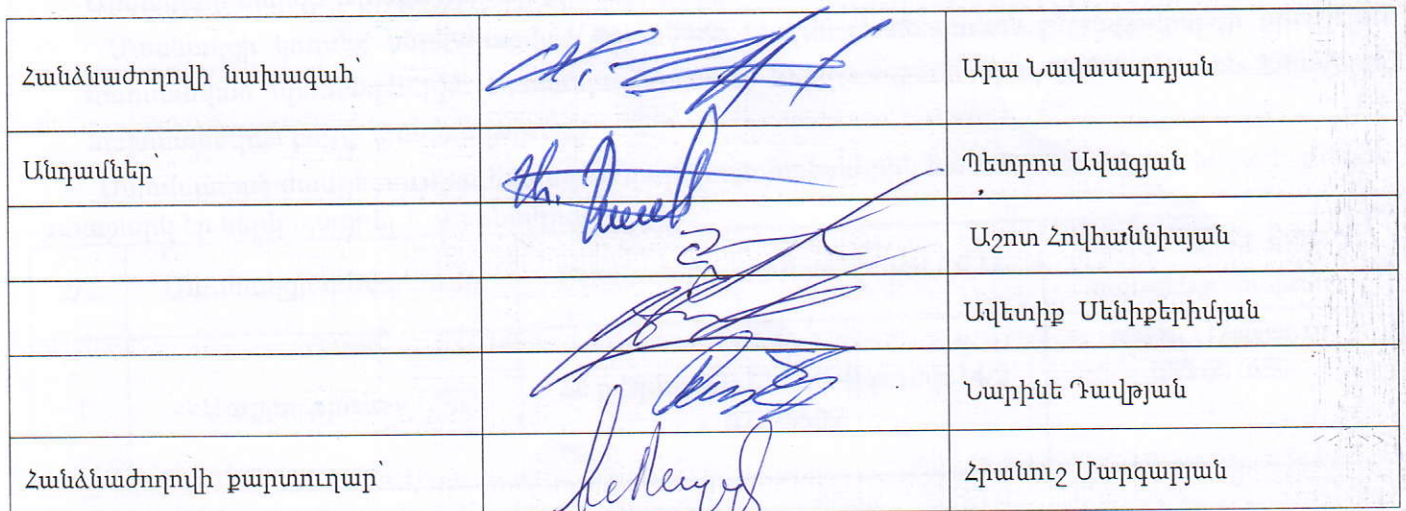 Հանձնաժողովի նախագահ՝ Արա Նավասարդյան
Անդամներ՝ Պետրոս Ավագյան
Աշոտ Հովհաննիսյան
Ավետիք Սենիքերիմյան
Նարինե Դավթյան
Հանձնաժողովի քարտուղար՝ Հրանուշ Մարգարյան